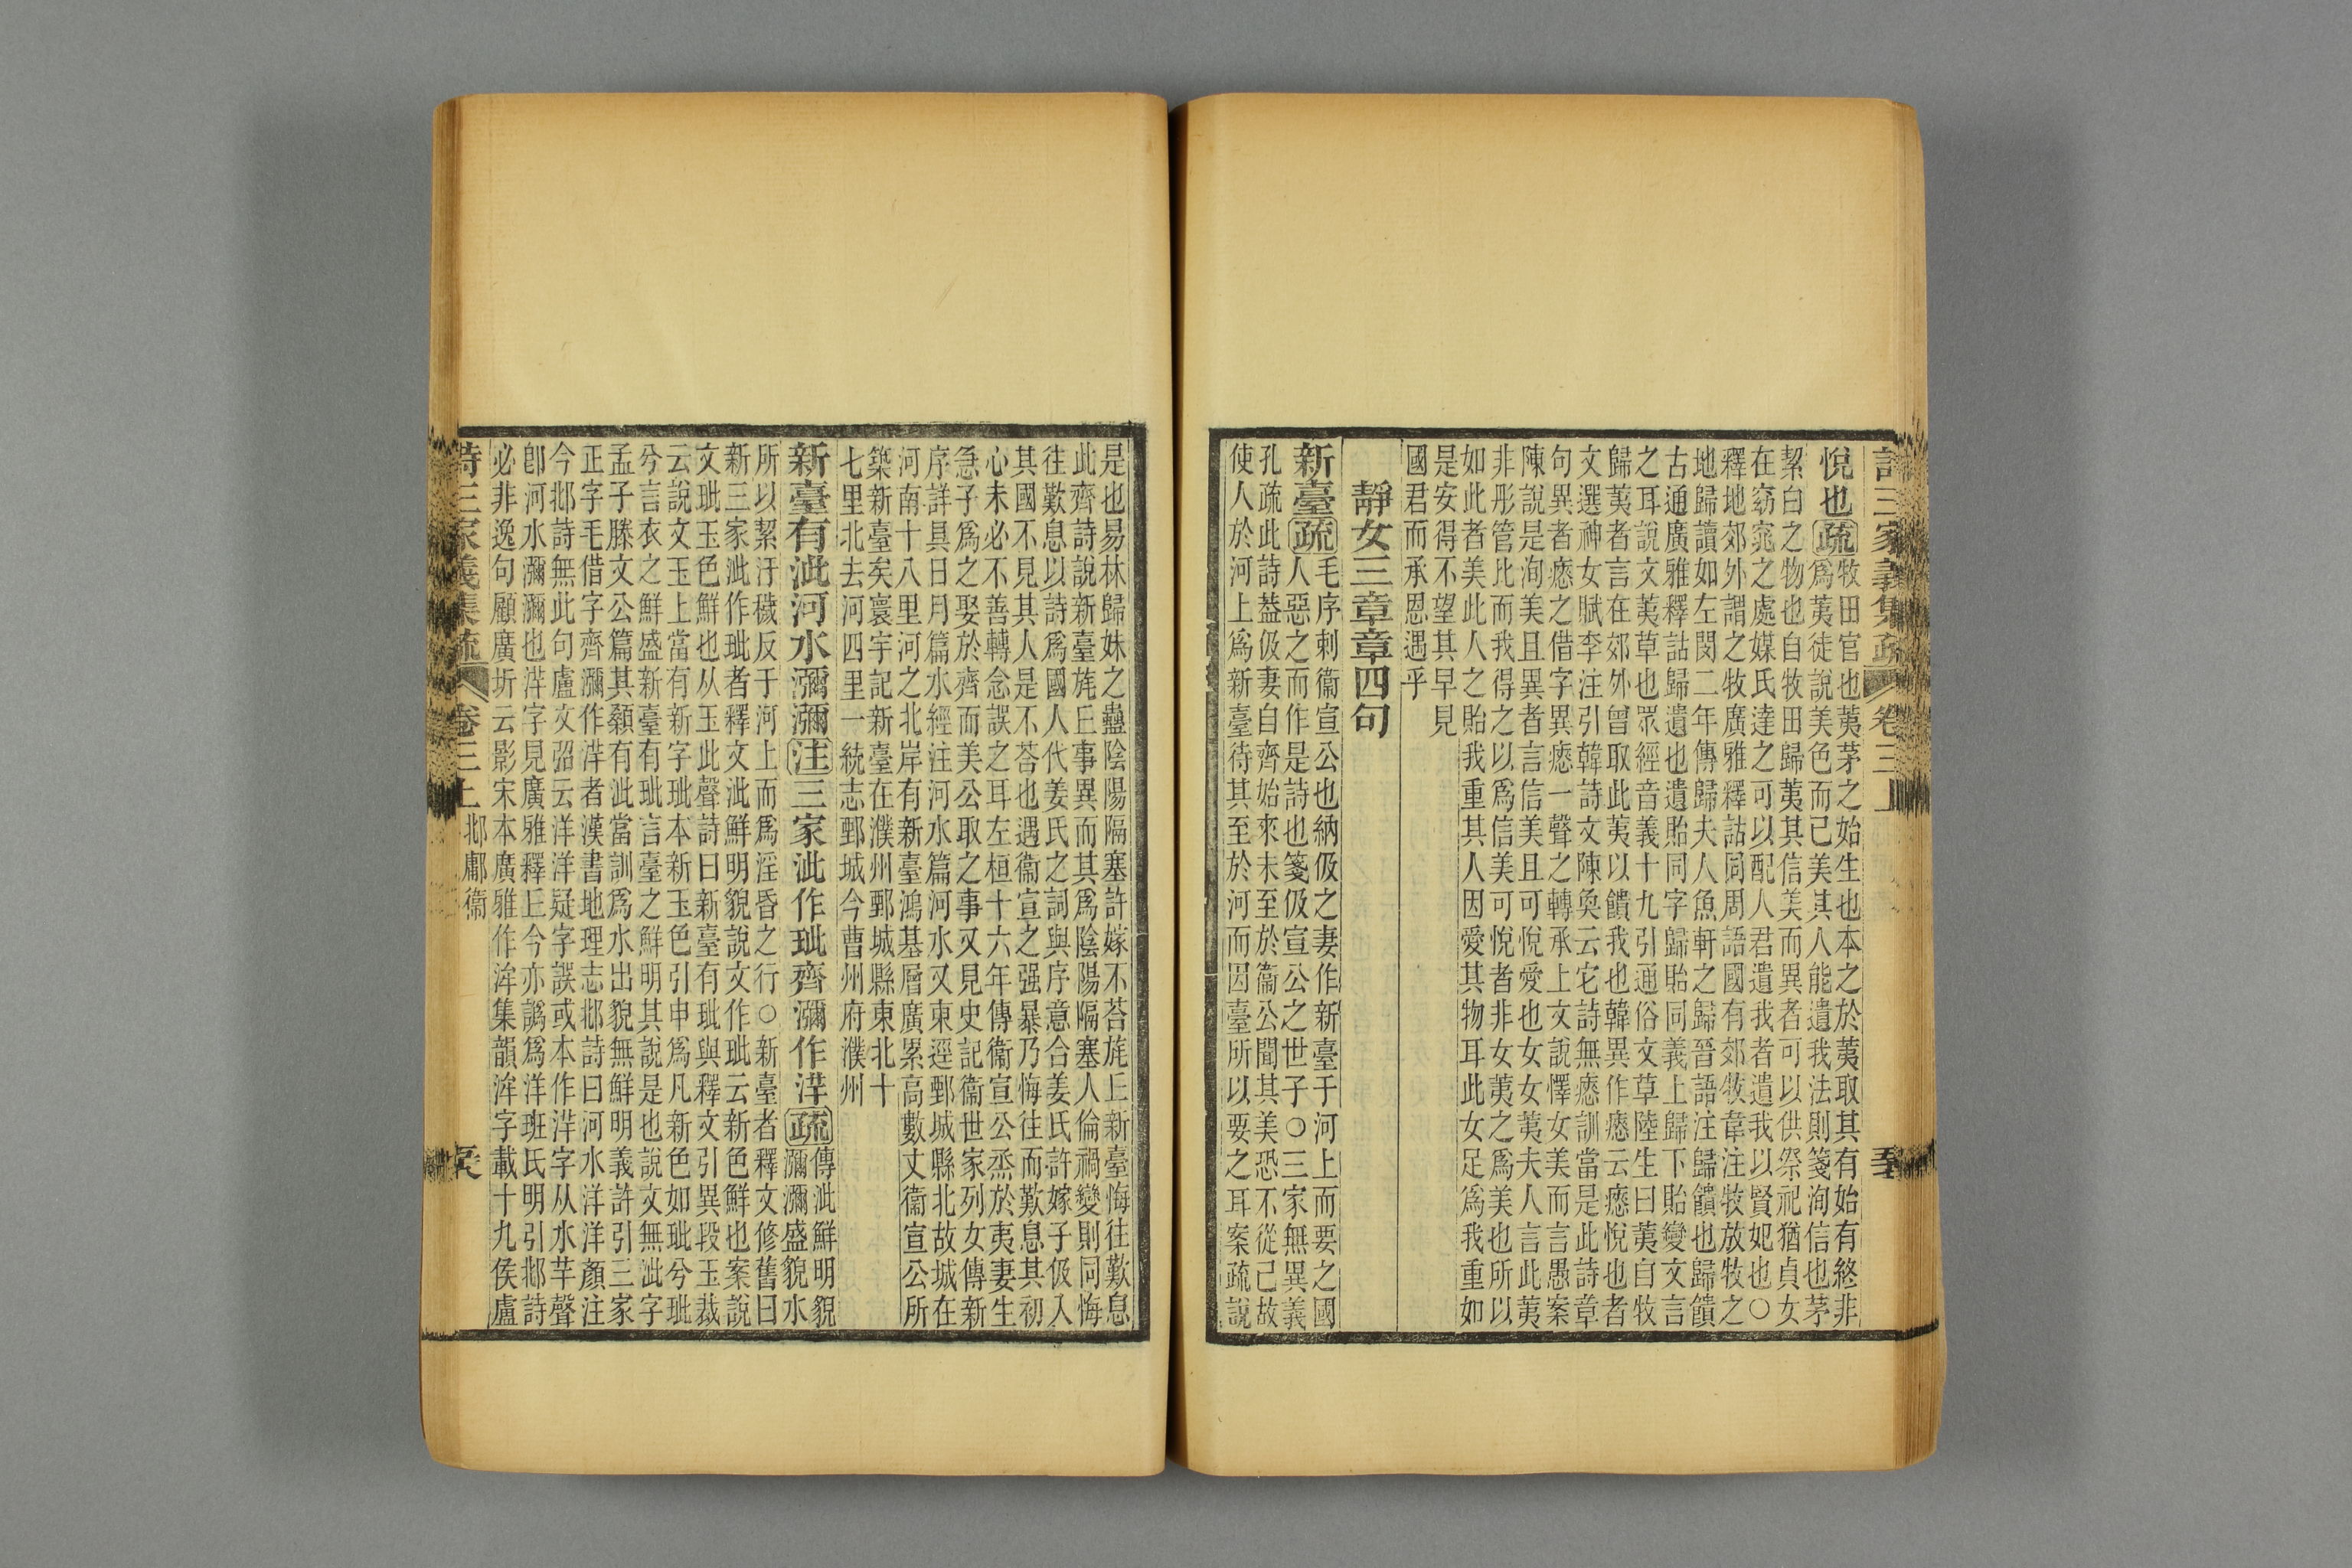 詩三家義集疏 卷三上
悅也疏
牧田官也荑茅之始生也本之於荑取其有始有終非
爲荑徒說美色而已美其人能遺我法則箋洵信也茅
絜白之物也自牧田歸荑其信美而異者可以供祭祀猶貞女
在窈窕之處媒氏達之可以配人君遺我者遺我以賢妃也○
釋地郊外謂之牧廣雅釋詁同周語國有郊牧韋注牧放牧之
地歸讀如左閔二年傳歸夫人魚軒之歸晉語注歸饋也歸饋
古通廣雅釋詁歸遺也遺貽同字歸貽同義上歸下貽變文言
之耳說文荑草也眾經音義十九引通俗文草陸生曰荑自牧
歸荑者言在郊外曾取此荑以饋我也韓異作瘱云瘱悅也者
文選神女賦李注引韓詩文陳奐云它詩無瘱訓當是此詩章
句異者瘱之借字異瘱一聲之轉承上文說懌女美而言愚案
陳說是洵美且異者言信美且可悅愛也女女荑夫人言此荑
非彤管比而我得之以爲信美可悅者非女荑之爲美也所以
如此者美此人之貽我重其人因愛其物耳此女足爲我重如
是安得不望其早見
國君而承恩遇乎
靜女三章章四句
新臺疏
毛序刺衞宣公也納伋之妻作新臺于河上而要之國
人惡之而作是詩也箋伋宣公之世子○三家無異義
孔疏此詩葢伋妻自齊始來未至於衞公聞其美恐不從己故
使人於河上爲新臺待其至於河而因臺所以要之耳案疏說
是也易林歸妹之蠱陰陽隔塞許嫁不荅旄丘新臺悔往歎息
此齊詩說新臺旄丘事異而其爲陰陽隔塞人倫禍變則同悔
往歎息以詩爲國人代姜氏之詞與序意合姜氏許嫁子伋入
其國不見其人是不荅也遇衞宣之强暴乃悔往而歎息其初
心未必不善轉念誤之耳左桓十六年傳衞宣公烝於夷妻生
急子爲之娶於齊而美公取之事又見史記衞世家列女傳新
序詳具日月篇水經注河水篇河水又東逕鄄城縣北故城在
河南十八里河之北岸有新臺鴻基層廣累高數丈衞宣公所
築新臺矣寰宇記新臺在濮州鄄城縣東北十
七里北去河四里一統志鄄城今曹州府濮州
新臺有泚河水瀰瀰注三家泚作玼齊瀰作洋疏
傳泚鮮明貌
瀰瀰盛貌水
所以絜汙穢反于河上而爲淫昏之行○新臺者釋文修舊曰
新三家泚作玼者釋文泚鮮明貌說文作玼云新色鮮也案說
文玼玉色鮮也从玉此聲詩曰新臺有玼與釋文引異段玉裁
云說文玉上當有新字玼本新玉色引申爲凡新色如玼兮玼
兮言衣之鮮盛新臺有玼言臺之鮮明其說是也說文無泚字
孟子滕文公篇其顙有泚當訓爲水出貌無鮮明義許引三家
正字毛借字齊瀰作洋者漢書地理志邶詩曰河水洋洋顏注
今邶詩無此句盧文弨云洋洋疑字誤或本作㳽字从水芉聲
卽河水瀰瀰也洋字見廣雅釋丘今亦譌爲洋班氏明引邶詩
必非逸句顧廣圻云影宋本廣雅作洋集韻洋字載十九侯盧
詩三家義集疏 卷三上 邶鄘衞